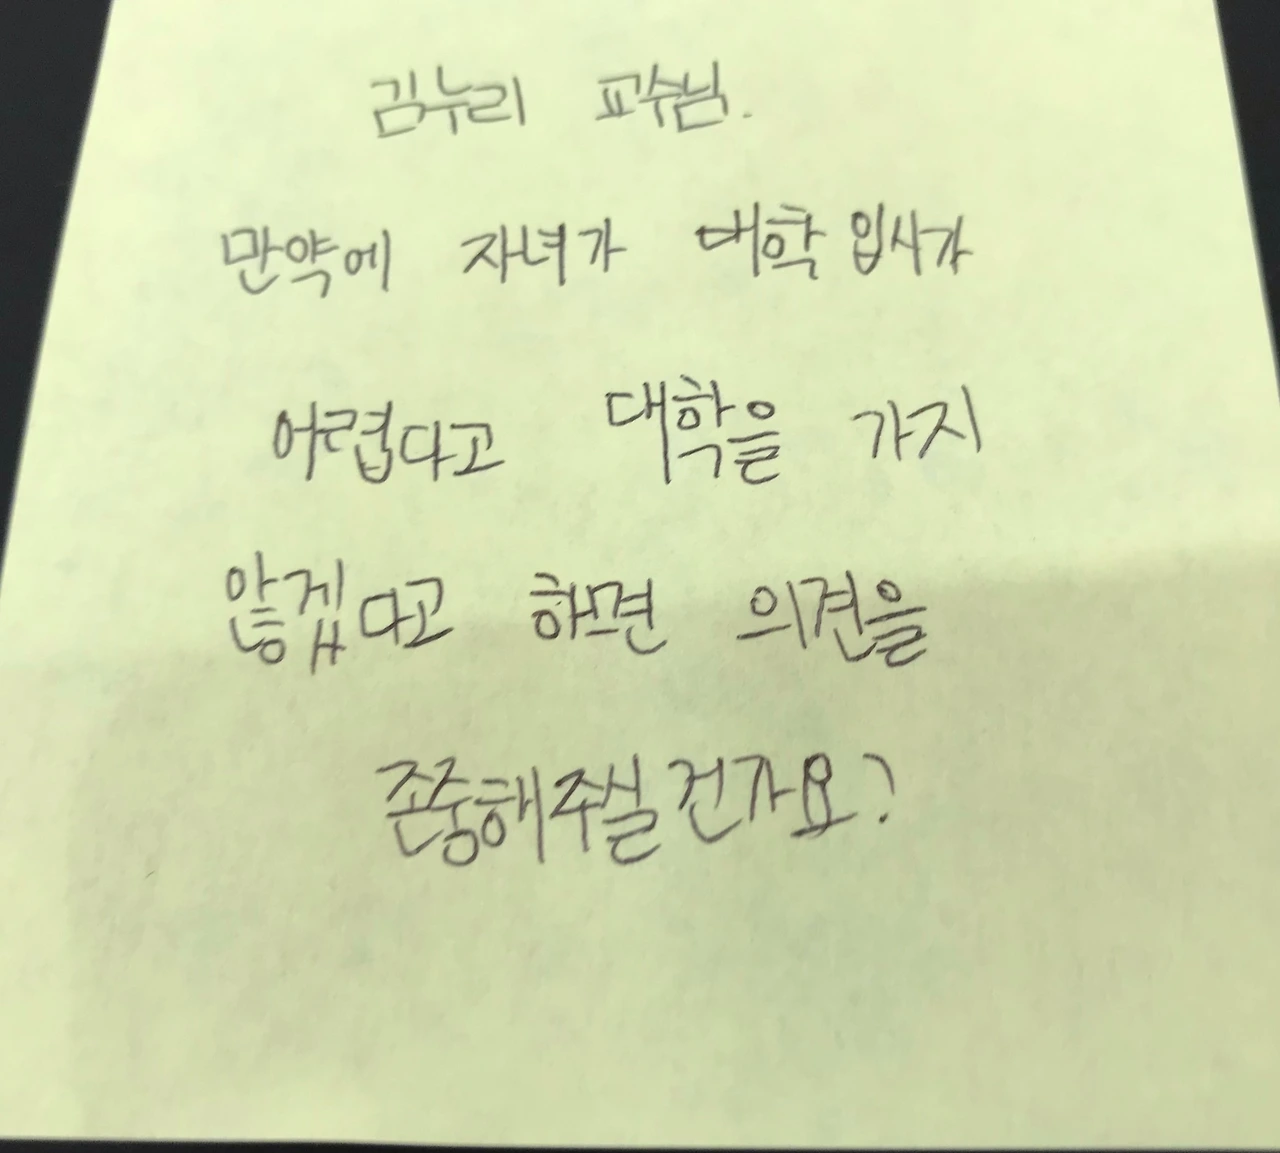 김누리 교수님.
만약에 자녀가 대학 입시가
어렵다고 대학을 가지
않겠다고 하면 의견을
존중해주실 건가요?